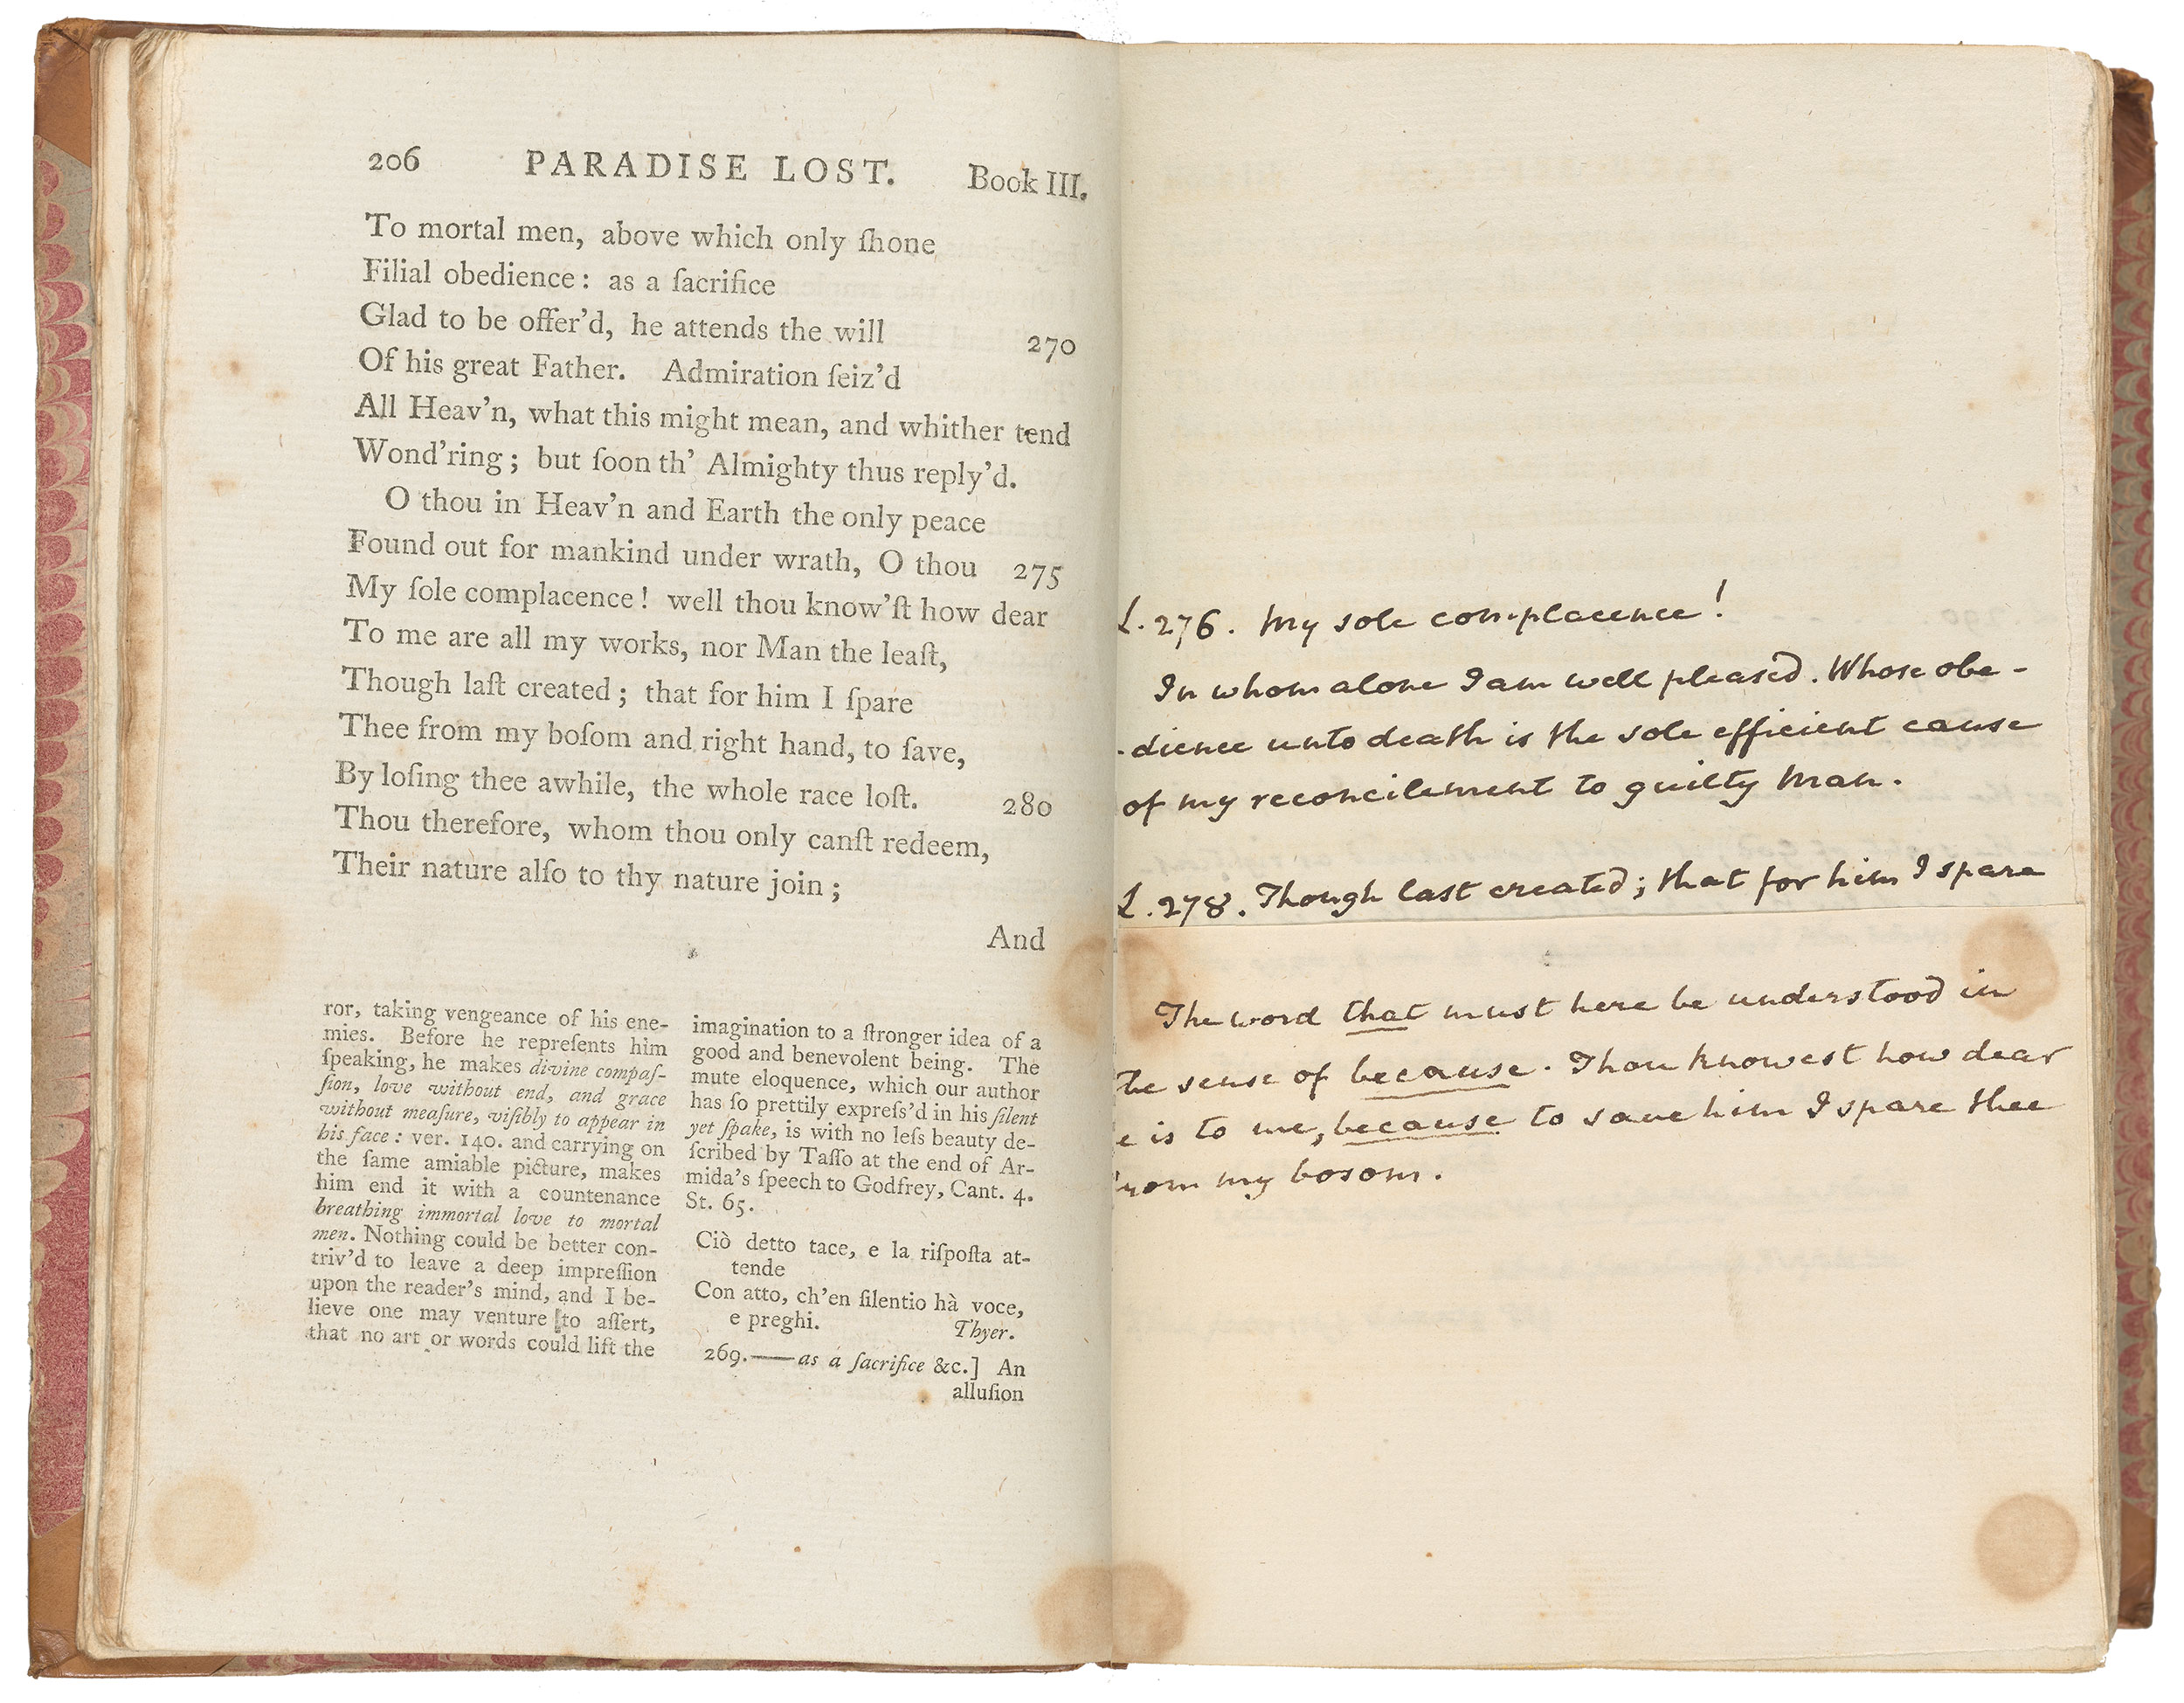 206 PARADISE LOST. Book III.
To mortal men, above which only ſhone
Filial obedience: as a ſacrifice
Glad to be offer'd, he attends the will 270
Of his great Father. Admiration ſeiz'd
All Heav'n, what this might mean, and whither tend
Wond'ring; but ſoon th' Almighty thus reply'd.
O thou in Heav'n and Earth the only peace
Found out for mankind under wrath, O thou 275
My ſole complacence! well thou know'ſt how dear
To me are all my works, nor Man the leaſt,
Though laſt created; that for him I ſpare
Thee from my boſom and right hand, to ſave,
By loſing thee awhile, the whole race loſt. 280
Thou therefore, whom thou only canſt redeem,
Their nature alſo to thy nature join;
And
ror, taking vengeance of his ene-
mies. Before he repreſents him
ſpeaking, he makes divine compaſ-
ſion, love without end, and grace
without meaſure, viſibly to appear in
his face: ver. 140. and carrying on
the ſame amiable picture, makes
him end it with a countenance
breathing immortal love to mortal
men. Nothing could be better con-
triv'd to leave a deep impreſſion
upon the reader's mind, and I be-
lieve one may venture to aſſert,
that no art or words could lift the
imagination to a ſtronger idea of a
good and benevolent being. The
mute eloquence, which our author
has ſo prettily expreſs'd in his ſilent
yet ſpake, is with no leſs beauty de-
ſcribed by Taſſo at the end of Ar-
mida's ſpeech to Godfrey, Cant. 4.
St. 65.
Ciò detto tace, e la riſpoſta at-
tende
Con atto, ch'en ſilentio hà voce,
e preghi. Thyer.
269.——as a ſacrifice &c.] An
alluſion
L. 276. My sole complacence!
In whom alone I am well pleased. Whose obe-
-dience unto death is the sole efficient cause
of my reconcilement to guilty Man.
L. 278. Though last created; that for him I spare
The word that must here be understood in
the sense of because. Thou knowest how dear
e is to me, because to save him I spare thee
from my bosom.